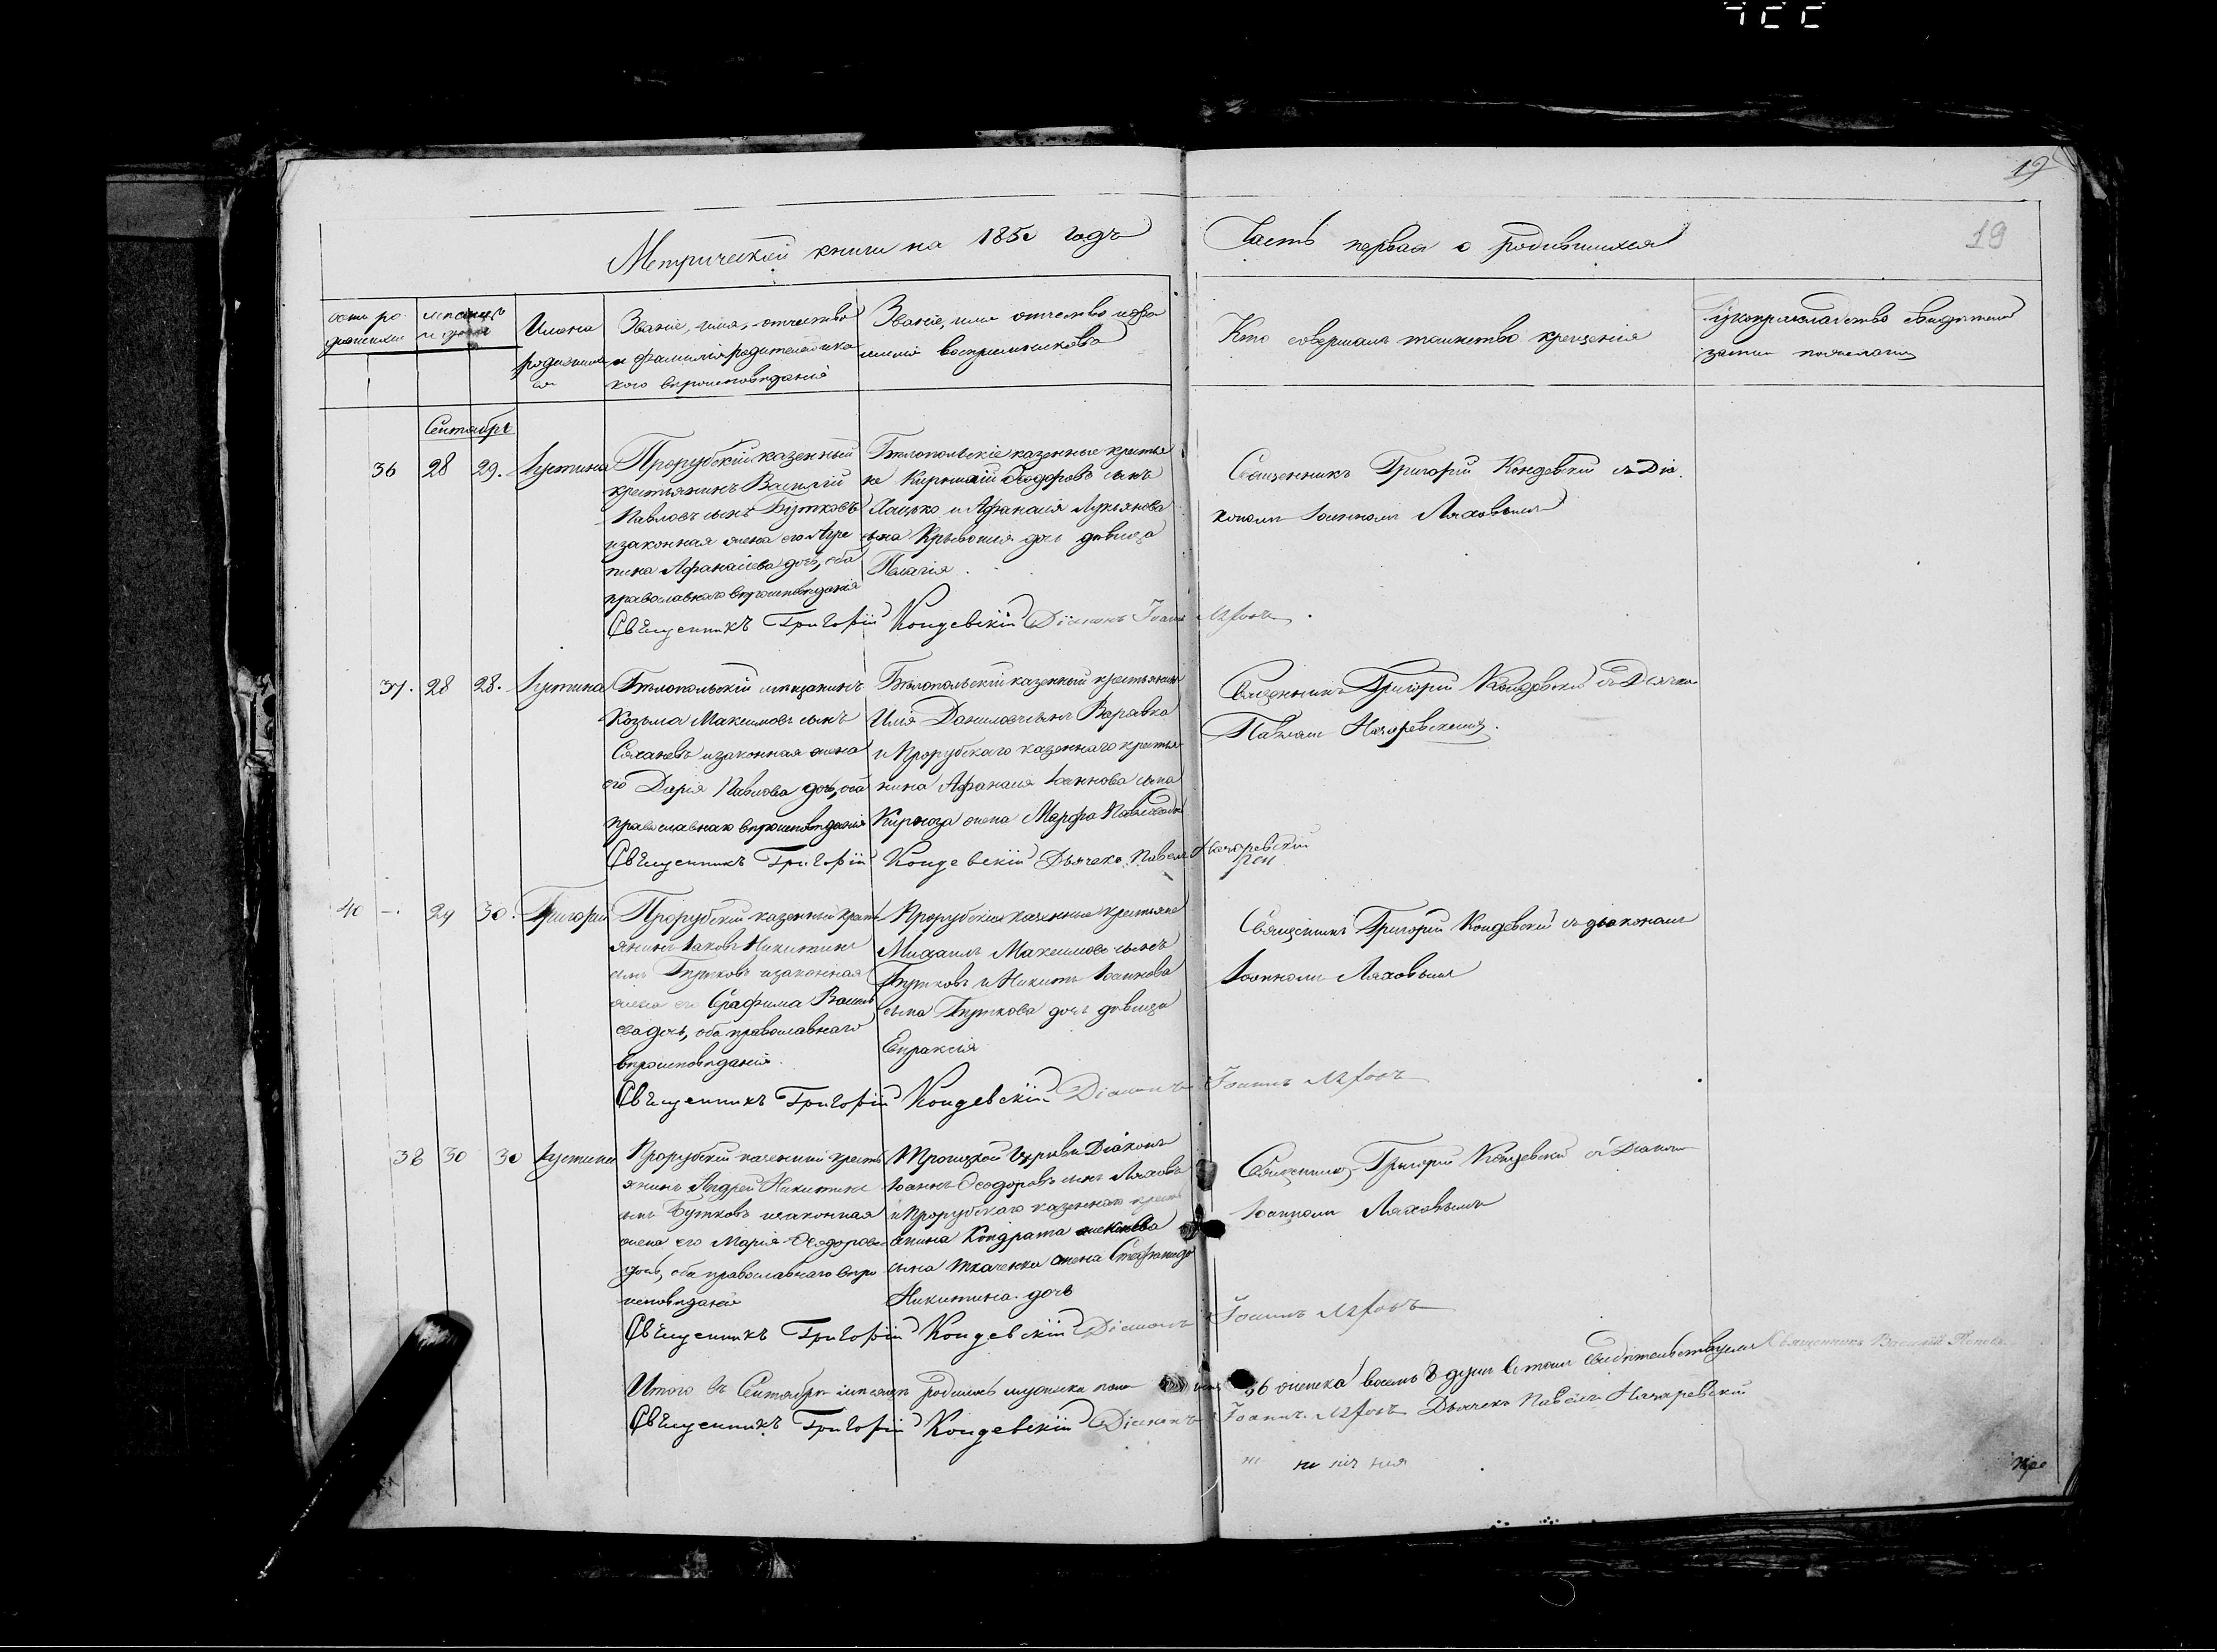 19
19
Метрической книги на 1850 годъ
Часть первая о родившихся
Имена
родивших
ся
Званіе, имя, отчество
и фамилія родителей и ка
кого вероисповеданія
Званіе, имя отчество и фа
милія воспріемниковъ
Кто совершалъ таинство крещенія
Рукоприкладство свидетелей
записи по желанію
Сентябрь
36 28 29. Іустина
Прорубскій казенный
крестьянинъ Василій
Павловъ сынъ Бутковъ
и законная жена его Агри
пина Афанасіева дочь, оба
православнаго вероисповеданія
Белопольскіе казенные крестья
не Феодоровъ сынъ
Ляшко и Афанасія Лукьянова
сына дочь девица
Пелагія.
Священникъ Григорій Кондевскій съ Діа
кономъ Іоанномъ Ляховымъ
Священникъ Григорій Кондевскій Діаконъ Іоаннъ Ляховъ.
37. 28 28. Іустина
Белопольскій мещанинъ
Козьма Максимовъ сынъ
и законная жена
его Дарія Павлова дочь, оба
православнаго вероисповеданія
Белопольскій казенный крестьянинъ
Илія Даниловъ сынъ Варавка
и Прорубскаго казеннаго крестья
нина Афанасія Іоаннова сына
жена Марфа Павлова
Священникъ Григорій Кондевскій съ Дьячко
Павломъ Назаревскимъ.
Священникъ Григорій Кондевскій Дьячекъ Павелъ Назаревскій
40 -. 29 30. Григорій
Прорубскій казенный крестья
янинъ Іаковъ Никитинъ
сынъ Бутковъ и законная
жена его Серафима Василь
ева дочь, оба православнаго
вероисповеданія.
Прорубскіе казенные крестьяне
Михаилъ Максимовъ сынъ
Бутковъ и Никиты Іоаннова
сына Буткова дочь девица
Евпраксія
Священникъ Григорій Кондевскій съ діакономъ
Іоанномъ Ляховымъ
Священникъ Григорій Кондевскій Діаконъ Іоаннъ Ляховъ
38 30 30 Іустина
Прорубскій казенный кресть
янинъ Андрей Никитинъ
сынъ Бутковъ и законная
жена его Марія Феодорова
дочь, оба православнаго веро
исповеданія
Троицкой Церкви Діаконъ
Іоаннъ Феодоровъ сынъ Ляховъ
и Прорубскаго казеннаго кресть
янина Кондрата
сына Ткаченка жена Стефанида
Никитина дочь
Священникъ Григорій Кондевскій съ Діакон
Іоанномъ Ляховымъ
Священникъ Григорій Кондевскій Діаконъ Іоаннъ Ляховъ
Итого въ Сентябре месяце родилось мужеска пола 6 женска восемь 8 душъ въ томъ свидетельствуемъ Священникъ Василій Поповъ
Священникъ Григорій Кондевскій Діаконъ Іоаннъ Ляховъ Дьячекъ Павелъ Назаревскій